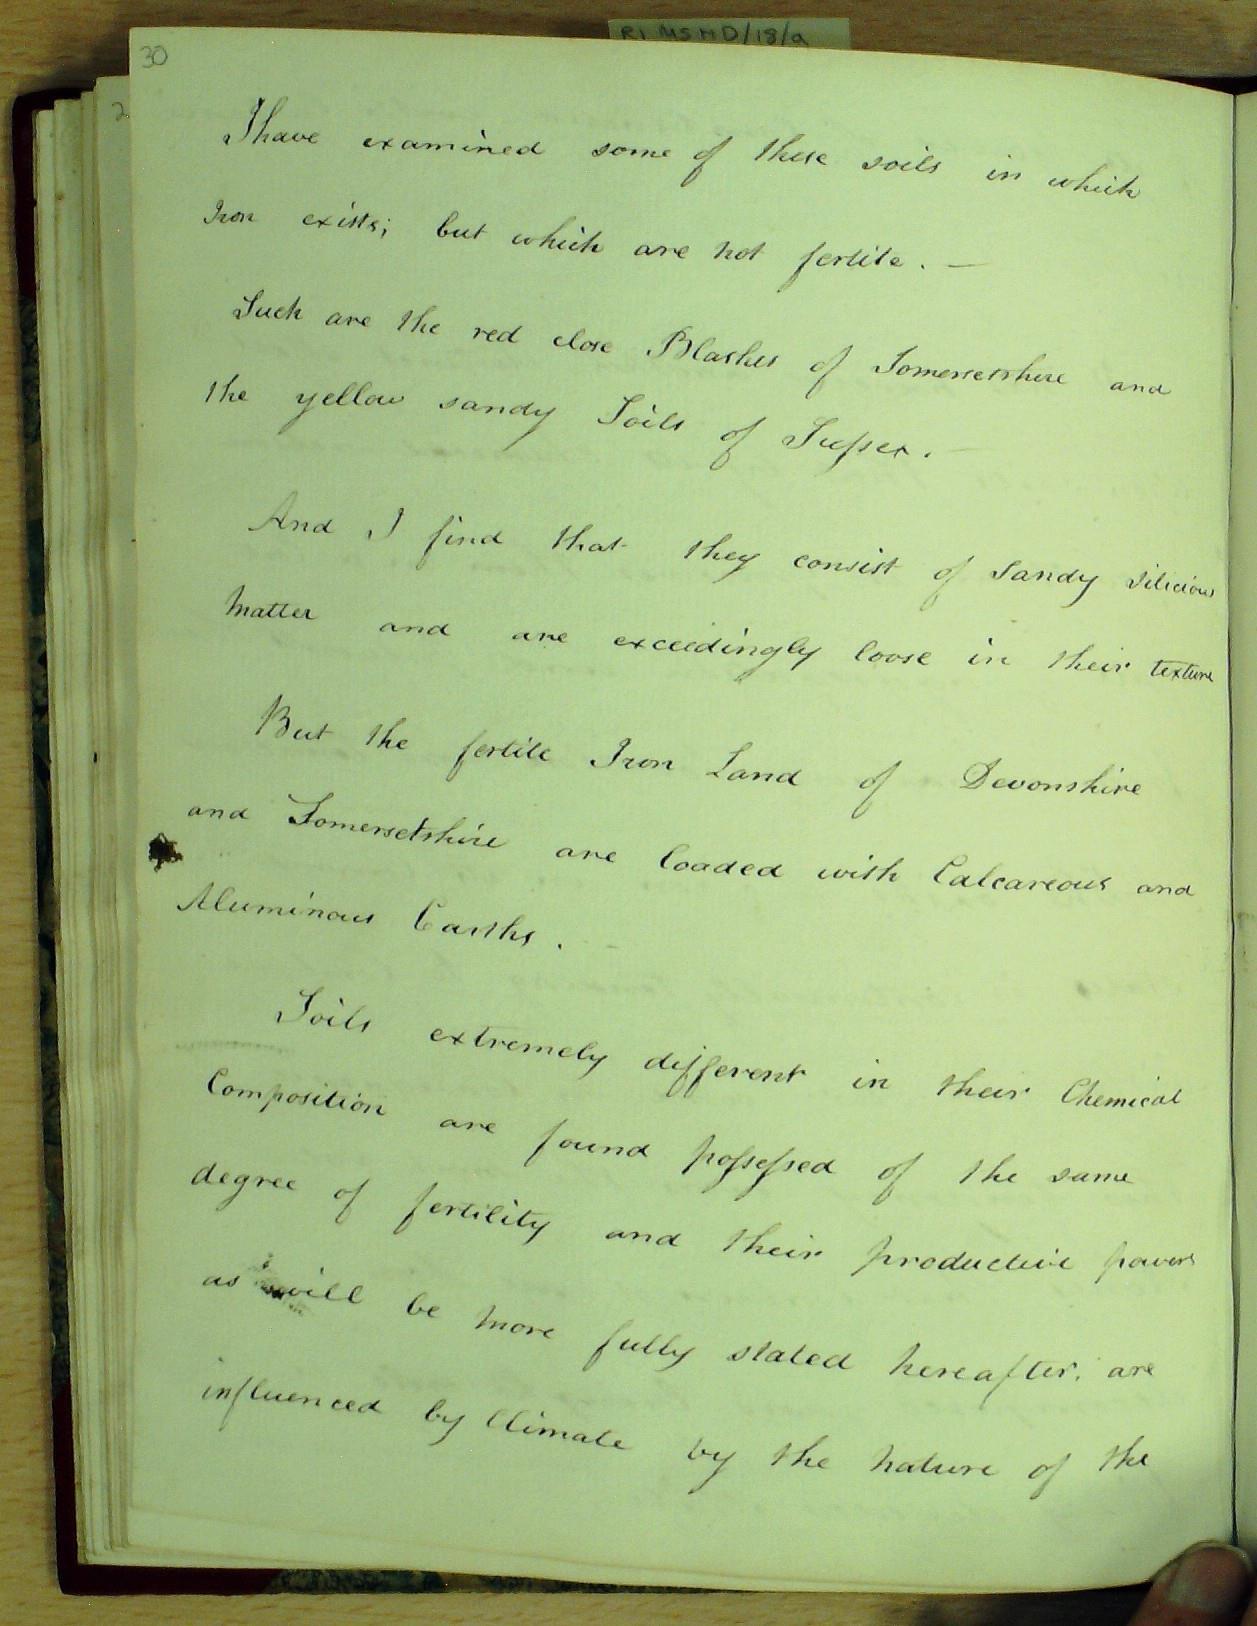 RI MS HD/18/a
30
2
I have examined some of these soils in which
Iron exists; but which are not fertile. —
Such are the red close Blashes of Somersetshire and
the yellow sandy Soils of Sussex. —
And I find that they consist of Sandy Silicious
Matter and are exceedingly loose in their texture
But the fertile Iron Land of Devonshire
and Somersetshire are loaded with Calcareous and
Aluminous Earths. —
Soils extremely different in their Chemical
Composition are found possessed of the same
degree of fertility and their productive powers
as will be more fully stated hereafter, are
influenced by Climate by the nature of the